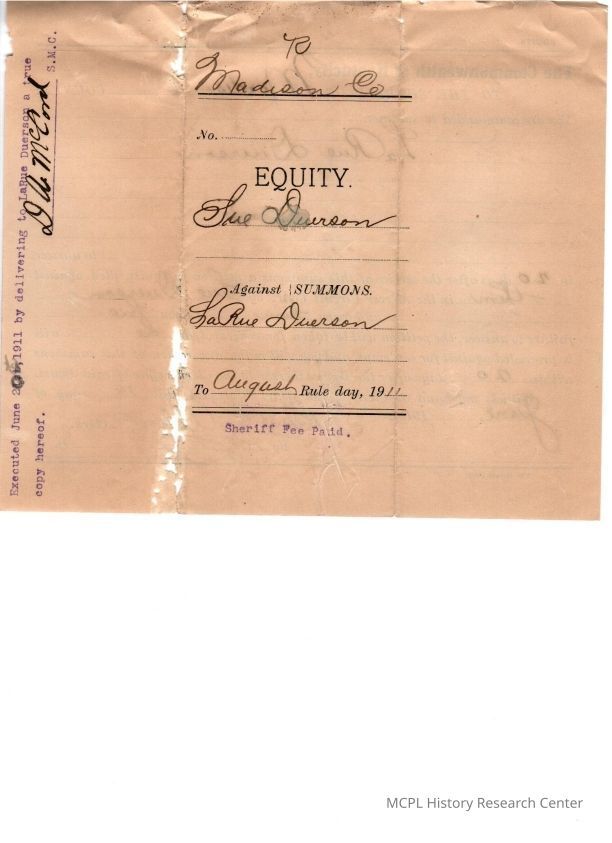 P
Madison Co
No.
EQUITY.
Sue Duerson
Against SUMMONS.
LaRue Duerson
To August Rule day, 1911
Sheriff Fee Paid.
Executed June 1911 by delivering to LaRue Duerson a true
copy hereof.
D W McCord S.M.C.
The Commonwealth
LaRue Duerson
MCPL History Research Center